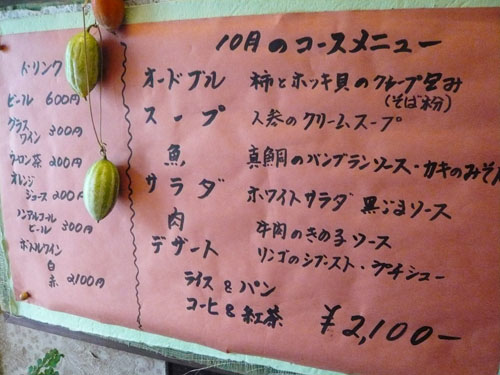 10月のコースメニュー
ドリンク
ビール 600円
グラス
ワイン 300円
ウーロン茶 200円
オレンジ
ジュース 200円
ノンアルコール
ビール 300円
ボトルワイン
白
赤 2,100円
オードブル 柿とホッキ貝のクレープ包み
(そば粉)
スープ 人参のクリームスープ
魚 真鯛のバンブランソース・カキのみそ
サラダ ホワイトサラダ 黒ごまソース
肉 牛肉のきのこソース
デザート リンゴのシブースト・プチシュー
ライス & パン
コーヒ & 紅茶
¥2,100-